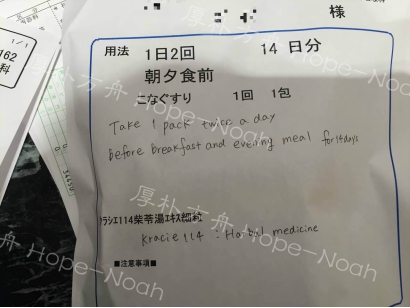 様
用法 1日2回 14日分
朝夕食前
こなぐすり 1回 1包
Take 1 pack twice a day
before breakfast and evening meal for 14 days
クラシエ114柴苓湯エキス細粒
Kracie 114 : Harbal medicine
■注意事項■
162
科
1/1
34450
厚朴方舟 Hope-Noah